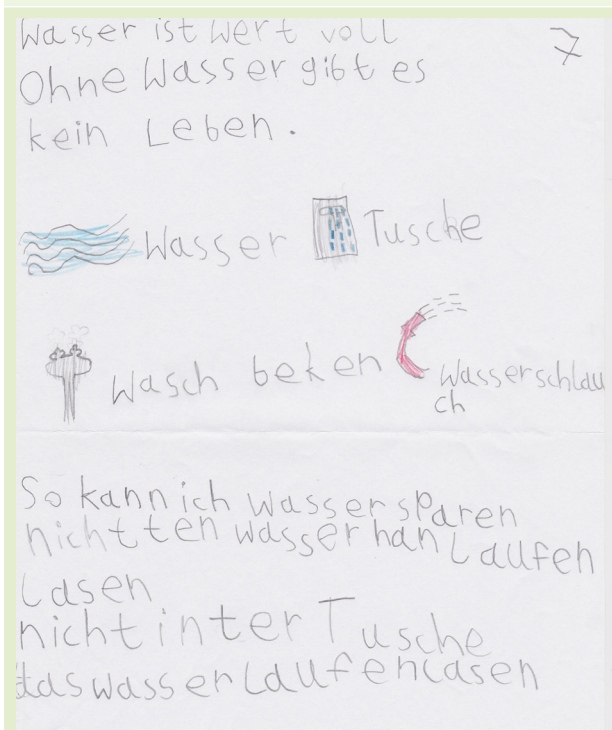 Wasser ist wert voll
7
Ohne Wasser gibt es
kein Leben.
Wasser
Tusche
Wasch beken
Wasserschlau
ch
So kann ich wasser sparen
nicht ten wasser han Laufen
Lasen
nicht in ter Tusche
tas wasser Laufen lasen